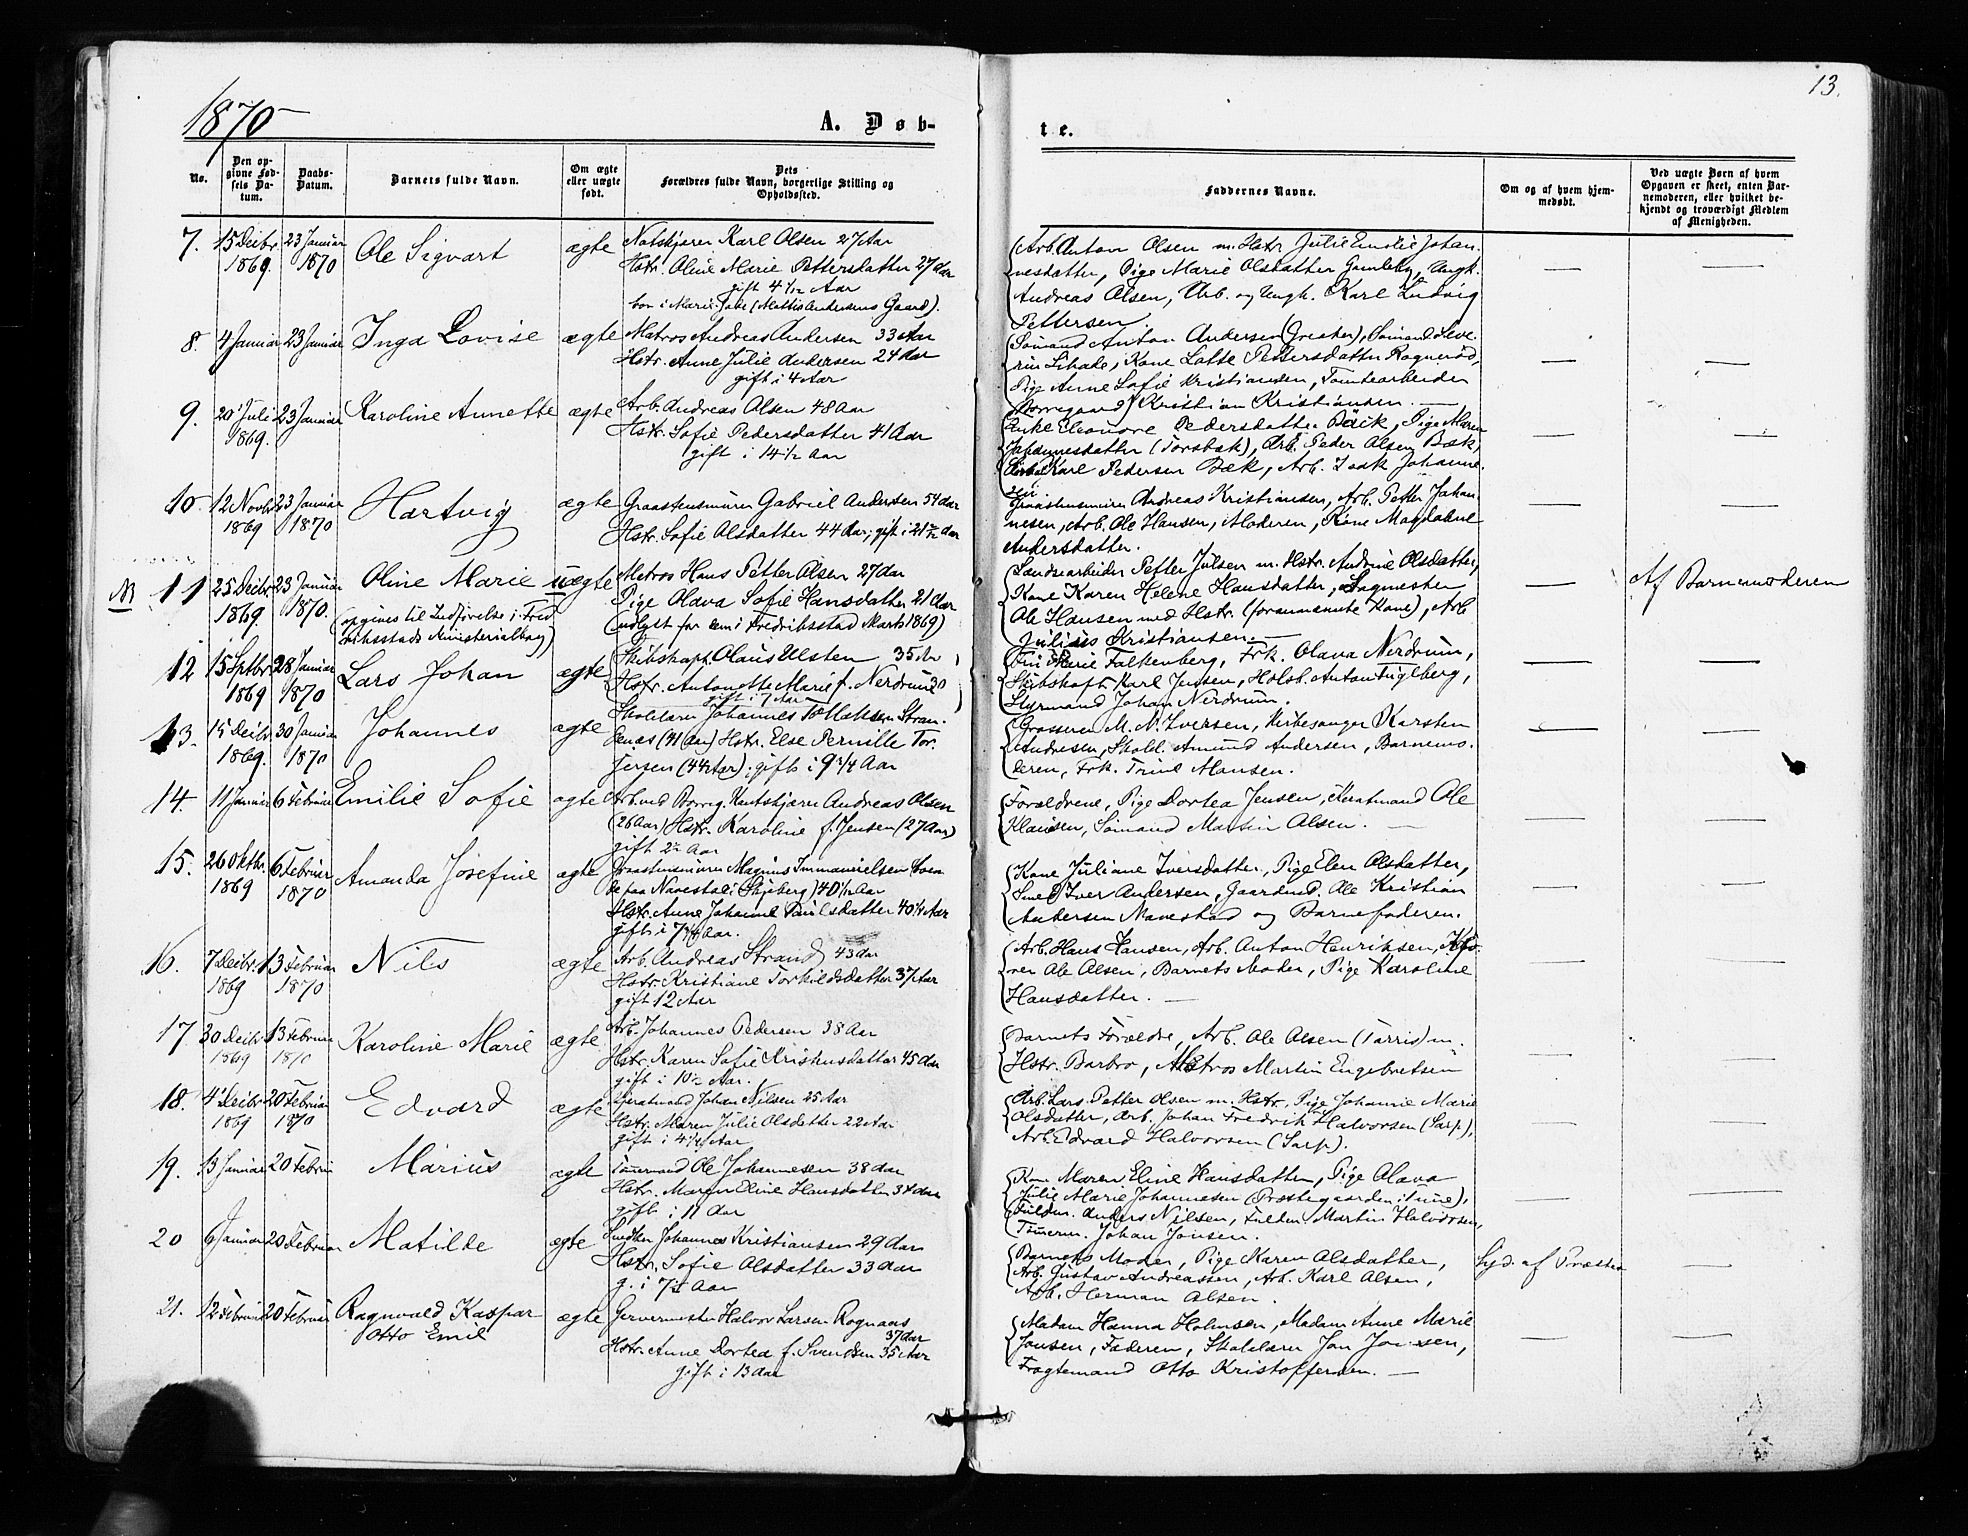 1870
A. Døb-
te.
13.
No.
Den opgivne Fødsels Datum.
Daabs-Datum.
Barnets fulde Navn.
Om ægte eller uægte født.
Dets Forældres fulde Navn, borgerlige Stilling og Opholdssted.
Faddernes Navne.
Om og af hvem hjemmedøbt.
Ved uægte Børn af hvem Opgaven er skeet, enten Barnemoderen, eller hvilket bekjendt og troværdigt Medlem af Menigheden.
7. 15 Decbr. 1869. 23 Januar 1870 Ole Sigvart ægte
Karl Olsen 27 Aar
Hstr. Oline Marie Pettersdatter 27 Aar
gift 4 1/12 Aar
(Mattis Andersens Gaard).
(Arb. Anton Olsen m. Hstr. Julie Emelie Johan-
nesdatter, Pige Marie Olsdatter Gamleby, Ungk.
Andreas Olsen, Arb. og Ungk. Karl Ludvig
Pettersen.
8. 4 Januar 23 Januar Inga Lovise ægte
Matros Andreas Andersen 33 Aar
Hstr. Anne Julie Andersen 24 Aar
gift i 4 Aar
(Sømand Anton Andersen (Greaker), Sømand Seve-
rin Kone Lotte Pettersdatter
Pige Anne Sofie Kristiansen, Tomtearbeider
Kristian Kristiansen. —
9. 20 Juli 1869. 23 Januar Karoline Annette ægte
Arb. Andreas Olsen 48 Aar
Hstr. Sofie Pedersdatter 41 Aar
gift i 14 1/2 Aar
Enke Eleonore Pedersdatter Pige Maren
Johannesdatter (Torsbæk), Arb. Peder Olsen Bæk,
Karl Pedersen Bæk, Arb. Isak Johanne-
sen
10. 12 Novbr 1869 23 Januar 1870 Hartvig ægte
Graastensmurer Gabriel Andersen 54 Aar
Hstr. Sofie Olsdatter 44 Aar; gift i 21 1/2 Aar
Graastensmurer Andreas Kristiansen, Arb. Petter Johan-
nesen, Arb. Ole Hansen, Moderen, Kone Magdalene
Andersdatter.
11 25 Decbr 1869. 23 Januar 1870. Oline Marie uægte
(opgives til Indførelse i Fred-
rikstads Ministerialbog)
Matros Hans Petter Olsen 27 Aar
Pige Olava Sofie Hansdatter 21 Aar
(udlyst for dem i Fredriksstad Marts 1869)
Petter Julsen m. Hstr. Andrine Olsdatter,
Kone Karen Helene Hansdatter, Sagmester
Ole Hansen med Hstr. (forannævnte Kone), Arb.
Julius Kristiansen. —
Af Barnemoderen
12 15 Septbr 1869 28 Januar 1870 Lars Johan ægte
Skibskapt. Olaus Ulsten 35 Aar
Hstr. Antonette Marie f. Nerdrum 30
gift i 7 Aar
Marie Falkenberg, Frk. Olava Nerdrum,
Skibskapt. Karl Jensen, Holsb. Anton Fuglberg,
Styrmand Johan Nerdrum.
13. 15 Decbr 1869. 30 Januar 1870 Johannes ægte
Skolelærer Johannes
(41 Aar) Hstr. Else Pernille Tor-
jersen (44 Aar); gift i 9 3/4 Aar
(Grosserer M. N. Iversen, Kirkesanger Karsten
Andresen, Skolel. Amund Andersen, Barnemo-
deren, Frk. Trine Hansen.
14. 11 Januar 6 Februar Emilie Sofie ægte
Andreas Olsen
(26 Aar) Hstr. Karoline f. Jensen (27 Aar)
gift 2 1/2 Aar
Forældrene, Pige Dortea Jensen, Ole
Klausen, Sømand Martin Olsen. —
15. 26 Oktbr. 1869 6 Februar 1870 Amanda Josefine ægte
Graastensmurer Magnus Immanuelsen boen-
de paa Navestad i Skjeberg) 40 1/12 Aar
Hstr. Anne Johanne Paulsdatter 40 1/4 Aar
gift i 7 3/4 Aar.
(Kone Juliane Iversdatter, Pige Elen Olsdatter,
Smed Iver Andersen, Gaardmd. Ole Kristian
Andersen Navestad og Barnefaderen.
16. 7 Decbr. 1869 13 Februar 1870 Nils ægte
Arb. Andreas Strand 43 Aar
Hstr. Kristiane Torkildsdatter 37 Aar
gift 12 Aar
(Arb. Hans Hansen, Arb. Anton Henriksen,
Ole Olsen, Barnets Moder, Pige Karoline
Hansdatter. —
17. 30 Decbr. 1869 13 Februar 1870 Karoline Marie ægte
Arb. Johannes Pedersen 38 Aar
Hstr. Karen Sofie Kristensdatter 45 Aar
gift i 10 1/2 Aar.
(Barnets Forældre, Arb. Ole Olsen (Tarris) m.
Hstr. Barbro, Matros Martin Engebretsen
18. 4 Decbr 1869 20 Februar 1870 Edvard ægte
Johan Nilsen 25 Aar
Hstr. Maren Julie Olsdatter 22 Aar
gift i 4 1/4 Aar
Arb. Lars Petter Olsen m. Hstr., Pige Johanne Marie
Olsdatter, Arb. Johan Fredrik Halvorsen (Sarp),
Arb. Edvard Halvorsen (Sarp).
19. 13 Januar 20 Februar Marius ægte
Tømmermd. Ole Johannesen 38 Aar
Hstr. Maren Eline Hansdatter 34 Aar
gift i 11 Aar
(Kone Maren Eline Hansdatter, Pige Olava
Julie Marie Johannesen (Præstegaarden i Tune),
Anders Nilsen, Martin Halvorsen,
Tømmerm. Johan Jonsen.
20 6 Januar 20 Februar Matilde ægte
Snedker Johannes Kristiansen 29 Aar
Hstr. Sofie Olsdatter 33 Aar
g. i 7 1/2 Aar
(Barnets Moder, Pige Karen Olsdatter,
Arb. Gustav Andreassen, Arb. Karl Olsen,
Arb. Herman Olsen.
af Præsten
21. 12 Februar 20 Februar Ragnvald Kaspar
Otto Emil ægte
Garvermester Halvor Larsen Rognaas
37 Aar
Hstr. Anne Dortea f. Svendsen 35 Aar
gift i 13 Aar
(Madam Hanna Holmsen, Madam Anne Marie
Jonsen, Faderen, Skolelærer Jon Jonsen,
Fragtemand Otto Kristoffersen. —